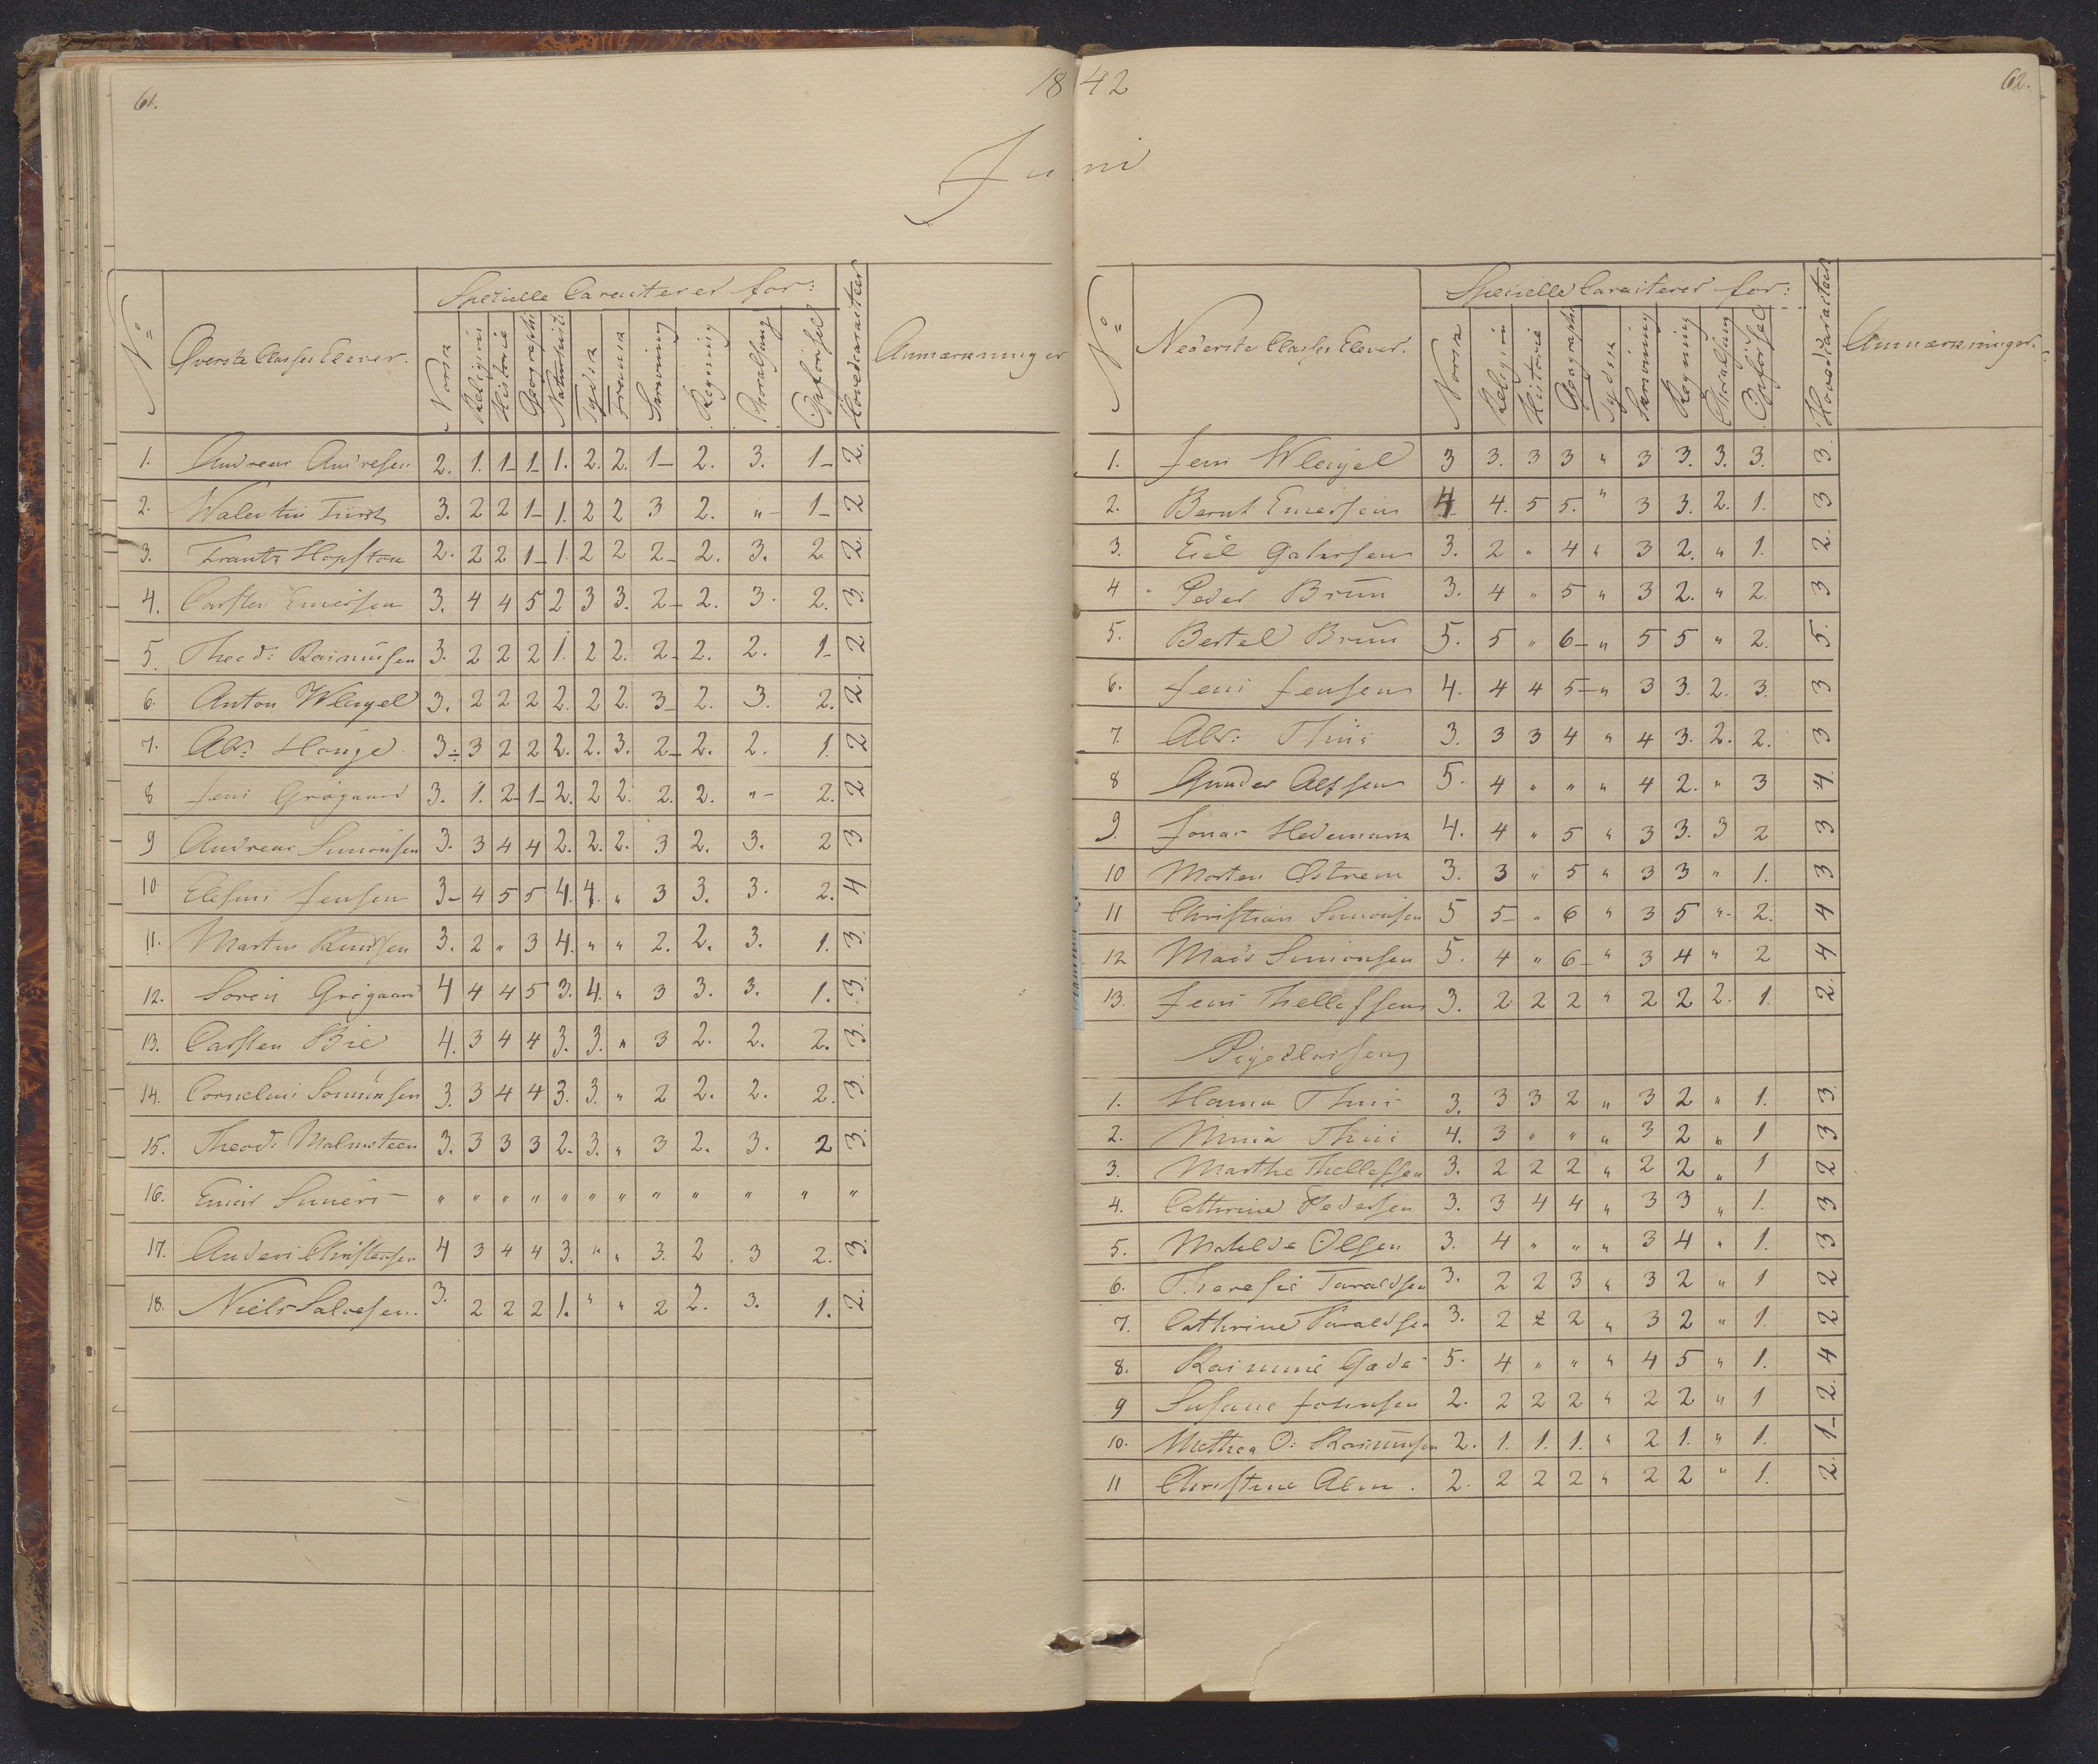 61.
18 42
62.
Juni
No
Øverste Classes Elever.
Specielle Caracterer for:
Norsk
Religion
Historie
Geographi
Naturhist:
Tydsk
Fransk
Skrivning
Regning
Choralsang
Opførsel
Hovedcaracteer
Anmærkninger
1. Andreas Andresen 2. 1. 1- 1- 1. 2. 2. 1- 2. 3. 1- 2.
2. Walentin Fürst 3. 2 2 1- 1. 2 2 3 2. " - 1- 2
3. Frantz Hopstok 2. 2 2 1- 1. 2 2 2- 2. 3. 2 2.
4. Carsten Emersen 3. 4 4 5 2 3 3. 2- 2. 3. 2. 3.
5. Theod: Rasmussen 3. 2 2 2 1. 2 2. 2- 2. 2. 1- 2
6. Anton Wleugel 3. 2 2 2 2. 2 2. 3- 2. 3. 2. 2.
7. Alb: Houge 3÷ 3 2 2 2. 2. 3. 2- 2. 2. 1. 2
8 Jens Grøgaard 3. 1. 2- 1- 2. 2 2. 2. 2. " - 2. 2
9 Andreas Simonsen 3. 3 4 4 2. 2. 2. 3 2. 3. 2 3
10 Ellefsin Jensen 3- 4 5 5 4. 4. " 3 3. 3. 2. 4
11. Martin Knudsen 3. 2 " 3 4. " " 2. 2. 3. 1. 3.
12. Søren Grøgaard 4 4 4 5 3. 4. " 3 3. 3. 1. 3.
13. Carsten Bie 4. 3 4 4 3. 3. " 3 2. 2. 2. 3.
14. Cornelius Sommensen 3. 3 4 4 3. 3. " 2 2. 2. 2. 3.
15. Theod: Malmsteen 3. 3 3 3 2. 3. " 3 2. 3. 2 3.
16. " " " " " " " " " " " "
17. Anders Christensen 4 3 4 4 3. " " 3. 2 3 2. 3.
18. Niels Salvesen. 3. 2 2 2 1. " " 2 2. 3. 1. 2.
No
Nederste Classes Elever.
Specielle Caracterer for:
Norsk
Religion
Historie
Geographi
Tydsk
Skrivning
Regning
Choralsang
Opførsel
Hovedcaracteer
Anmærkninger.
1. Jens Wleugel 3 3. 3 3 " 3 3. 3. 3. 3.
2. Bernt Emersen 4 4. 5 5. " 3 3. 2. 1. 3
3. Gahrsen 3. 2 " 4 " 3 2. " 1. 2.
4 Peder Bruun 3. 4 " 5 " 3 2. " 2. 3
5. Bertel Bruun 5. 5 " 6- " 5 5 " 2. 5.
6. Jens Jensen 4. 4 4 5- " 3 3. 2. 3. 3
7. Alb: Thiis 3. 3 3 4 " 4 3. 2. 2. 3
8 Gunder Alfsen 5. 4 " " " 4 2. " 3 4.
9. Jonas Hedemark 4. 4 " 5 " 3 3. 3 2 3
10 Morten Østrem 3. 3 " 5 " 3 3 " 1. 3
11 Christian Simonsen 5 5- " 6 " 3 5 " - 2. 4
12 Mads Simonsen 5. 4 " 6- " 3 4 " 2 4
13. Jens Thellefsen 3. 2 2 2 " 2 2 2. 1. 2.
Pigeclassen
1. Hanna Thiis 3. 3 3 2 " 3 2 " 1. 3.
2. Mina Thiis 4. 3 " " " 3 2 " 1 3
3. Marthe Thellefsen 3. 2 2 2 " 2 2 " 1 2
4. Cathrine Pedersen 3. 3 4 4 " 3 3 " 1. 3
5. Mathilde Olsen 3. 4 " " " 3 4 " 1. 3
6. Theresie Taraldsen 3. 2 2 3 " 3 2 " 1 2
7. Cathrine Taraldsen 3. 2 2 2 " 3 2 " 1. 2
8. Rasmine Gade 5. 4 " " " 4 5 " 1. 4
9 Susane Johnsen 2. 2 2 2 " 2 2 " 1 2.
10. Mathea O: Rasmussen 2. 1. 1. 1. " 2 1. " 1. 1-
11 Christine Alm. 2. 2 2 2 " 2 2 " 1. 2.